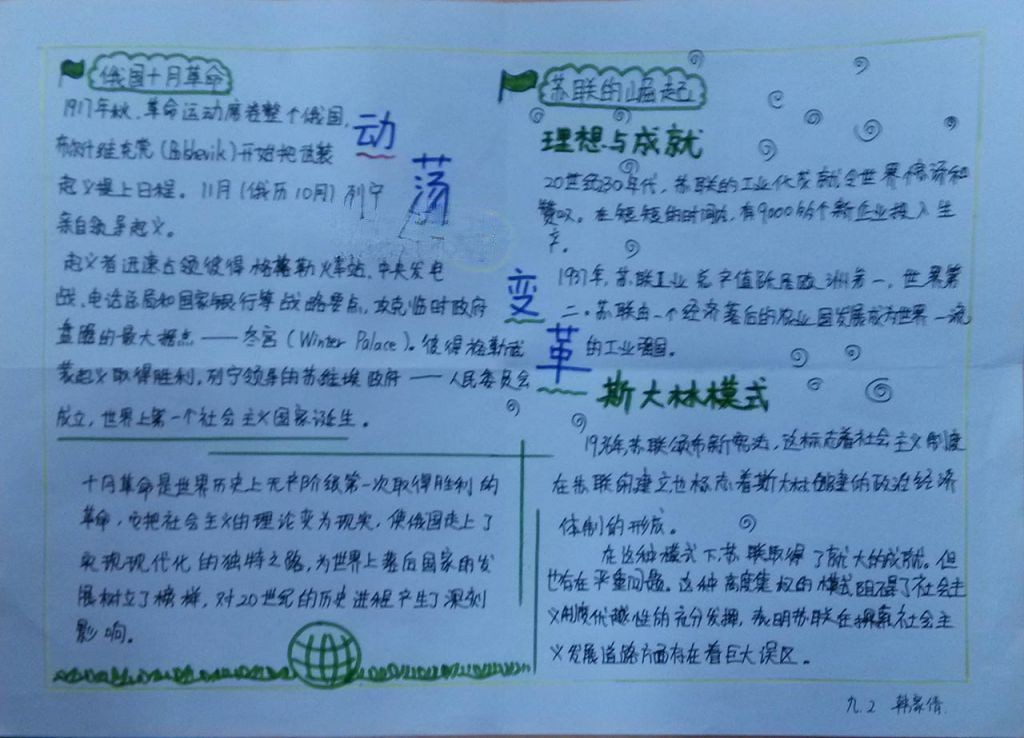 俄国十月革命
1917年秋,革命运动席卷整个俄国,
布尔什维克党(Bolshevik)开始把武装
起义提上日程。11月(俄历10月)列宁
亲自领导起义。
起义者迅速占领彼得格勒火车站、中央发电
战、电话总局和国家银行等战略要点,攻克临时政府
盘踞的最大据点——冬宫(Winter Palace)。彼得格勒武
装起义取得胜利,列宁领导的苏维埃政府——人民委员会
成立,世界上第一个社会主义国家诞生。
十月革命是世界历史上无产阶级第一次取得胜利的
革命,它把社会主义的理论变为现实,使俄国走上了
实现现代化的独特之路,为世界上落后国家的发
展树立了榜样,对20世纪的历史进程产生了深刻
影响。
动
荡
变
革
苏联的崛起
理想与成就
20世纪30年代,苏联的工业化成就令世界惊讶和
赞叹。在短短的时间内,有9000多个新企业投入生
产。
1937年,苏联工业总产值跃居欧洲第一,世界第
二。苏联由一个经济落后的农业国发展成为世界一流
的工业强国。
斯大林模式
苏联颁布新宪法,这标志着社会主义制度
在苏联的建立也标志着斯大林创建的政治经济
体制的形成。
在这种模式下,苏联取得了很大的成就。但
也存在严重问题。这种高度集权的模式阻碍了社会主
义制度优越性的充分发挥,表明苏联在探索社会主
义发展道路方面存在着巨大误区。
九.2 韩